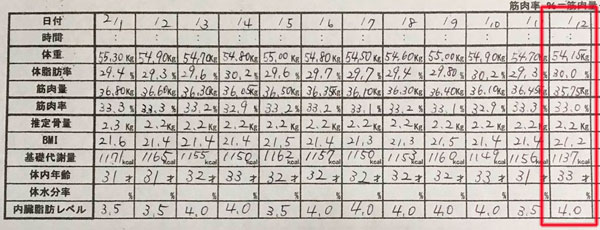 筋肉率 %=筋肉量
日付 2/1 /2 /3 /4 /5 /6 /7 /8 /9 /10 /11 /12
時間 : : : : : : : : : : : :
体重 55.30Kg 54.90Kg 54.70Kg 54.80Kg 55.00Kg 54.80Kg 54.50Kg 54.60Kg 55.00Kg 54.90Kg 54.70Kg 54.15Kg
体脂肪率 29.4% 29.3% 29.6% 30.2% 29.6% 29.7% 29.7% 29.4% 29.80% 30.2% 29.3% 30.0%
筋肉量 36.80Kg 36.60Kg 36.30Kg 36.05Kg 36.50Kg 36.35Kg 36.10Kg 36.30Kg 36.40Kg 36.10Kg 36.45Kg 35.75Kg
筋肉率 33.3% 33.3% 33.2% 32.9% 33.2% 33.2% 33.1% 33.2% 33.1% 32.9% 33.3% 33.0%
推定骨量 2.3Kg 2.2Kg 2.2Kg 2.2Kg 2.2Kg 2.2Kg 2.2Kg 2.2Kg 2.2Kg 2.2Kg 2.2Kg 2.2Kg
BMI 21.6 21.4 21.4 21.4 21.5 21.4 21.3 21.3 21.5 21.4 21.4 21.2
基礎代謝量 1171kcal 1165kcal 1155kcal 1150kcal 1162kcal 1157kcal 1150kcal 1153kcal 1160kcal 1149kcal 1156kcal 1137kcal
体内年齢 31才 31才 32才 33才 32才 32才 32才 32才 32才 33才 31才 33才
体水分率 % % % % % % % % % % % %
内臓脂肪レベル 3.5 3.5 4.0 4.0 3.5 4.0 4.0 4.0 4.0 4.0 3.5 4.0